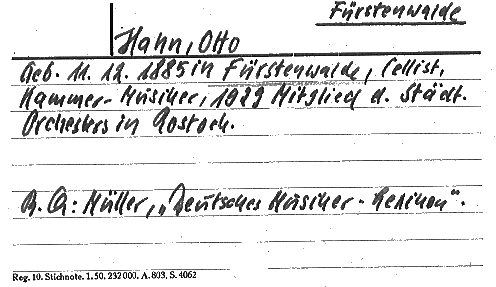 Fürstenwalde
Hahn, Otto
Geb. 11. 12. 1885 in Fürstenwalde, Cellist,
Kammer-Musiker, 1929 Mitglied d. Städt.
Orchesters in Rostock.
B. Q: Müller, „Deutsches Musiker-Lexikon".
Reg. 10. Stichnote. 1. 50. 232000. A. 803. S. 4062